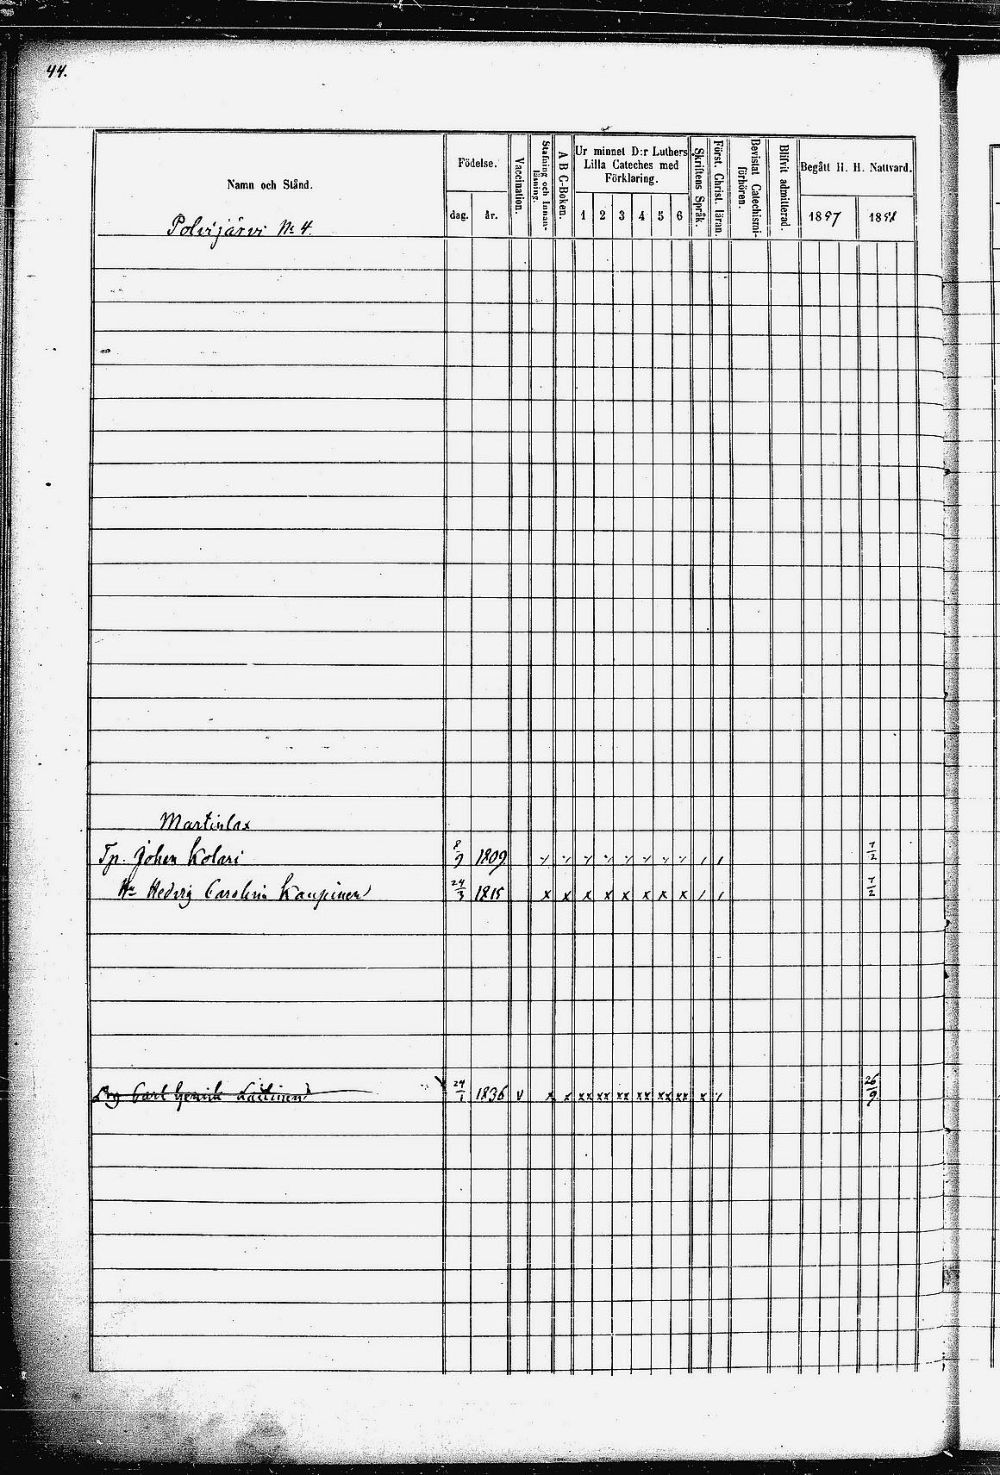 44.
Namn och Stånd.
Födelse.
dag. år.
Vaccination.
Stafning och Innan-läsning.
A B C-Boken.
Ur minnet D:r Luthers
Lilla Cateches med
Förklaring.
1 2 3 4 5 6
Skriftens Språk.
Först. Christ. läran.
Bevistat Catechismi-förhören.
Blifvit admitterad.
Begått H. H. Nattvard.
1897 1898
Polvijärvi No 4.
Martinlax
Tp. Johan Kolari 8/9 1809 7/2
Hu Hedvig Carolina Kaupinen 24/3 1815 x x x x x x x x 7/2
Carl Henrik Laitinen 24/1 1836 v x x xx xx xx xx xx xx x 26/9